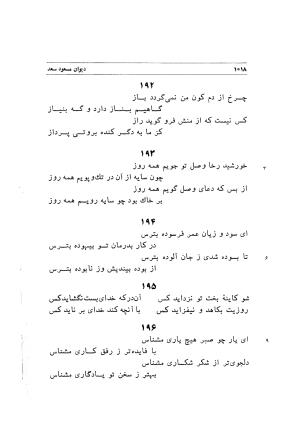 ۱۰۱۸
دیوان مسعود سعد
۱۹۲
چرخ از دم کون من نمی‌گردد باز
گاهیم بنساز دارد و گه بنیاز
کس نیست که از منش فرو گوید راز
کز ما به دگر کنده بروتی پرداز
۱۹۳
خورشید رخا وصل تو جویم همه روز
۳
چون سایه از آن در تک‌وپویم همه روز
از بس که دعای وصل گویم همه روز
بر خاک بود چو سایه رویم همه روز
۱۹۴
ای سود و زیان عمر فرسوده بترس
در کار بدرمان تو بیهوده بترس
تا بسوده شدی ز جان آلوده بترس
۶
از بوده بیندیش وز نابوده بترس
۱۹۵
شو کاینهٔ بخت تو نزداید کس
آن‌در‌که خدای‌بست‌نگشاید‌کس
روزیت بکاهد و نیفزاید کس
با آنچه کند خدای بر ناید کس
۱۹۶
ای یار چو صبر هیچ یاری مشناس
۹
با فایده‌تر ز رفق کاری مشناس
دلجوی‌تر از شکر شکاری مشناس
بهتر ز سخن تو یادگاری مشناس